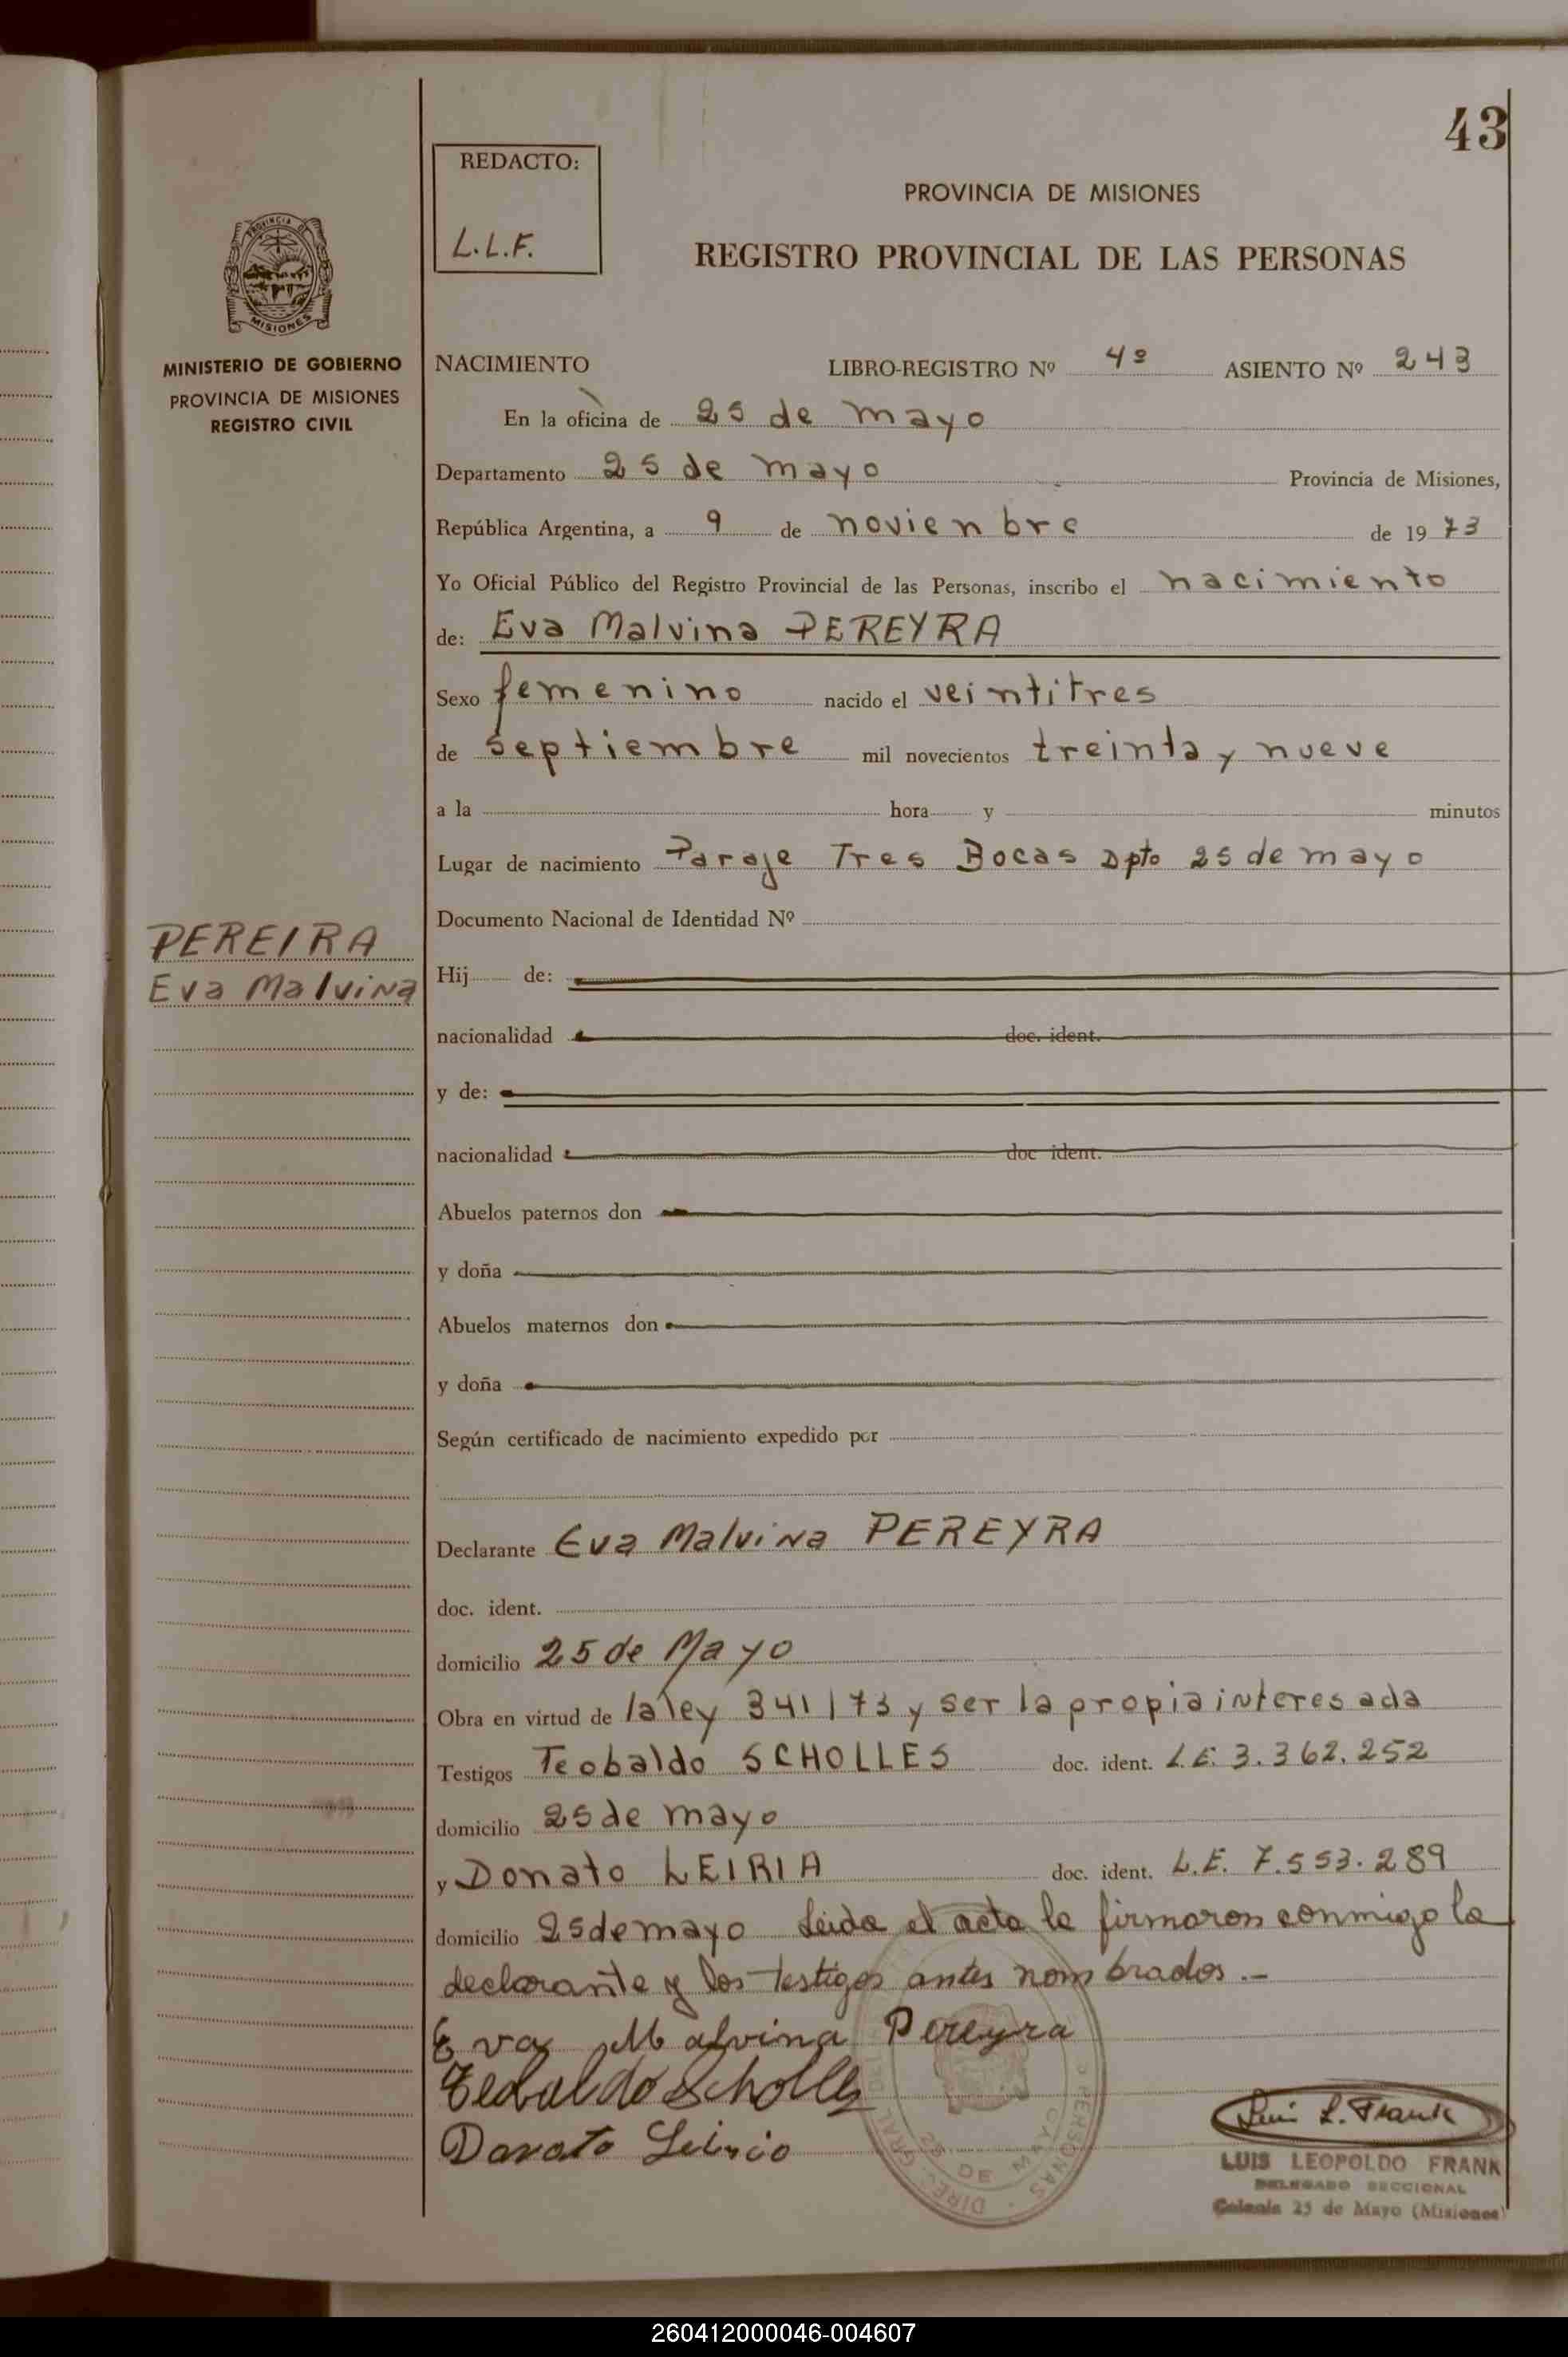 43
REDACTO:
L.L.F.
PROVINCIA DE MISIONES
REGISTRO PROVINCIAL DE LAS PERSONAS
PROVINCIA DE
MISIONES
MINISTERIO DE GOBIERNO
PROVINCIA DE MISIONES
REGISTRO CIVIL
NACIMIENTO LIBRO-REGISTRO Nº 4º ASIENTO Nº 243
En la oficina de 25 de mayo
Departamento 25 de mayo Provincia de Misiones,
República Argentina, a 9 de novienbre de 1973
Yo Oficial Público del Registro Provincial de las Personas, inscribo el nacimiento
de: Eva Malvina PEREYRA
Sexo femenino nacido el veintitres
de septiembre mil novecientos treinta y nueve
a la hora y minutos
Lugar de nacimiento Paraje Tres Bocas Dpto 25 de mayo
Documento Nacional de Identidad Nº
PEREIRA
Eva Malvina
Hij de:
nacionalidad doc. ident.
y de:
nacionalidad doc ident.
Abuelos paternos don
y doña
Abuelos maternos don
y doña
Según certificado de nacimiento expedido por
Declarante Eva Malvina PEREYRA
doc. ident.
domicilio 25 de Mayo
Obra en virtud de la ley 341/73 y ser la propia interesada
Testigos Teobaldo SCHOLLES doc. ident. L.E. 3.362.252
domicilio 25 de mayo
y Donato LEIRIA doc. ident. L.E. 7.553.289
domicilio 25 de mayo Leida el acta la firmaron conmigo la
declarante y los testigos antes nombrados.-
Eva Malvina Pereyra
Teobaldo Scholles
Donato Leirio
25 DE MAYO
PERSONAS · DIREC. GRAL.
Luis L. Frank
LUIS LEOPOLDO FRANK
DELEGADO SECCIONAL
Colonia 25 de Mayo (Misiones)
260412000046-004607